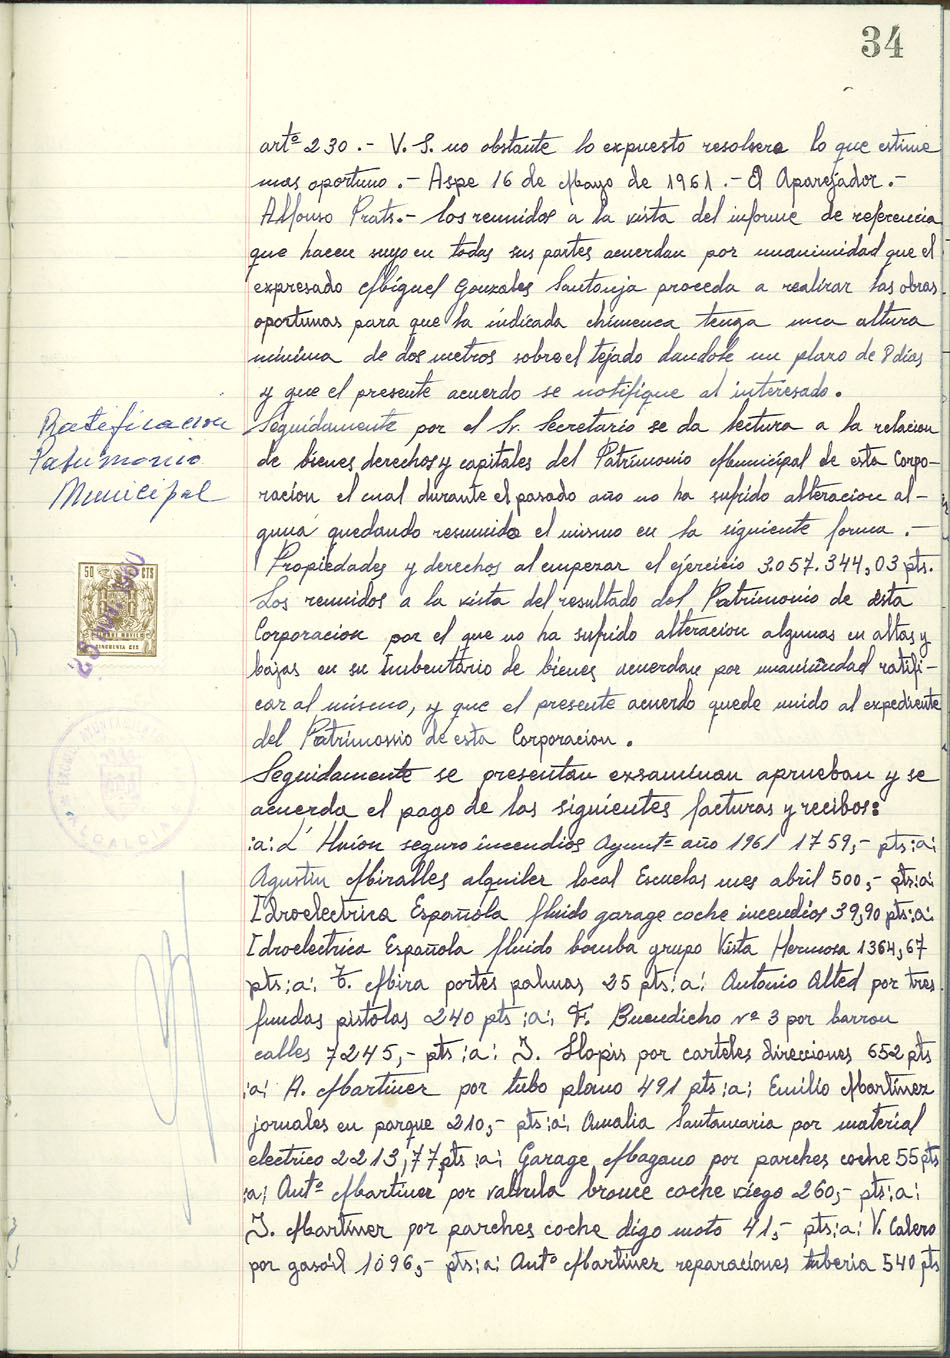 34
artº 230.- V. S. no obstante lo expuesto resolvera lo que estime
mas oportuno.- Aspe 16 de Mayo de 1961.- El Aparejador.-
Alfonso Prats.- Los reunidos a la vista del informe de referencia
que hacen suyo en todas sus partes acuerdan por unanimidad que el
expresado Miguel Gonzales Santonja proceda a realizar las obras
oportunas para que la indicada chimenea tenga una altura
minima de dos metros sobre el tejado dandole un plazo de 8 dias
y que el presente acuerdo se notifique al interesado.
Ratificacion
Patrimonio
Municipal
Seguidamente por el Sr. Secretario se da lectura a la relacion
de bienes derechos y capitales del Patrimonio Municipal de esta Corpo-
racion el cual durante el pasado año no ha sufrido alteracion al-
guna quedando resumido el mismo en la siguiente forma.-
Propiedades y derechos al empezar el ejercicio 3.057.344,03 pts.
Los reunidos a la vista del resultado del Patrimonio de esta
Corporacion por el que no ha sufrido alteracion algunas en altas y
bajas en su Imbentario de bienes acuerdan por unanimidad ratifi-
car al mismo, y que el presente acuerdo quede unido al expediente
del Patrimonio de esta Corporacion.
50 CTS
TIMBRE MOVIL
CINCUENTA CTS
ALCALDIA
Seguidamente se presentan exsaminan aprueban y se
acuerda el pago de las siguientes facturas y recibos:
:a: L' Unión seguro incendios Ayuntº año 1961 1759,- pts :a:
Agustin Miralles alquiler local Escuelas mes abril 500,- pts:a:
Idroelectrica Española fluido garage coche incendios 39,90 pts:a:
Idroelectrica Española fluido bomba grupo Vista Hermosa 1364,67
pts :a: T. Mira portes palmas 25 pts :a: Antonio Alted por tres
fundas pistolas 240 pts :a: F. Buendicho nº 3 por barron
calles 7245,- pts :a: J. Llopis por carteles direcciones 652 pts
:a: A. Martinez por tubo plomo 491 pts :a: Emilio Martinez
jornales en parque 210,- pts :a: Amalia Santamaria por material
electrico 2213,77 pts :a: Garage Magano por parches coche 55 pts
:a: Antº Martinez por valvula bronce coche riego 260,- pts :a:
J. Martinez por parches coche digo moto 41,- pts :a: V. Calero
por gasoil 1096,- pts :a: Antº Martinez reparaciones tuberia 540 pts